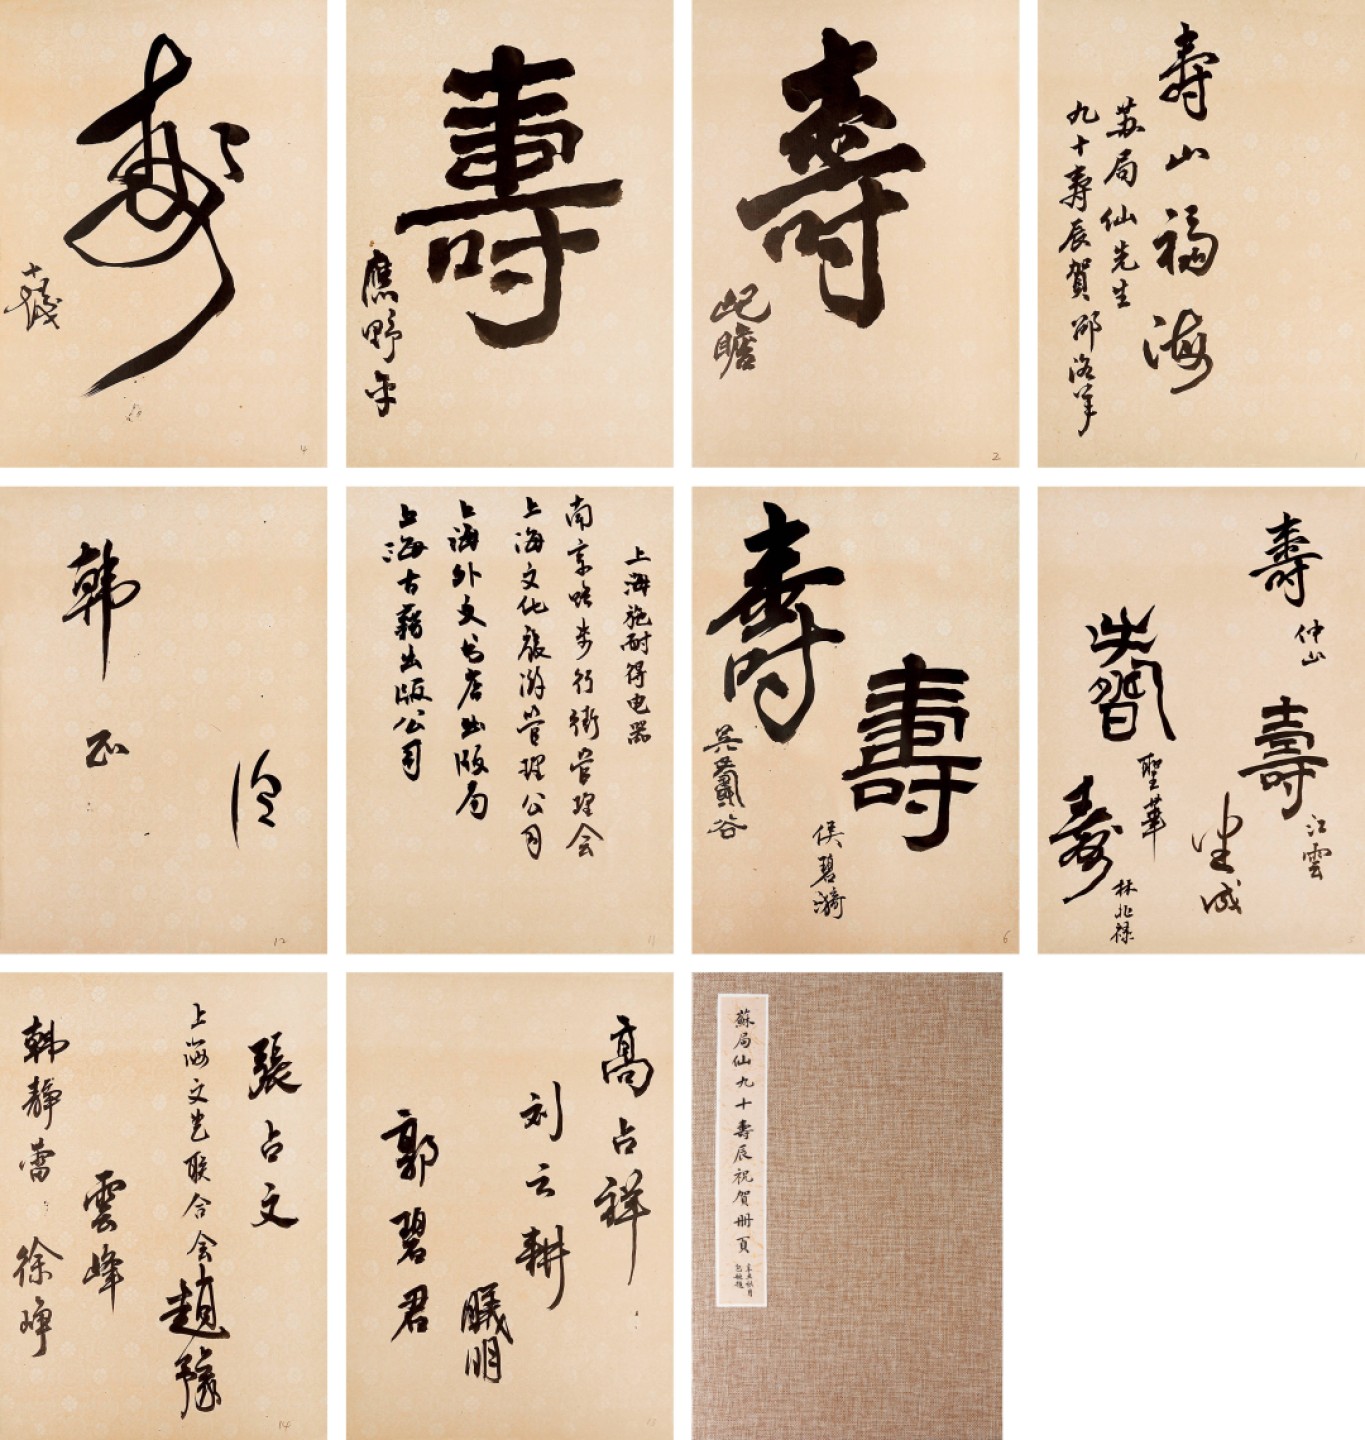 壽山福海
苏局仙先生
九十壽辰賀 邵洛羊
1
壽
屺瞻
2
壽
應野平
壽
十髮
4
壽
仲山
壽
江雲
聖華
壽
林兆禄
5
壽
壽
侯碧漪
6
上海施耐得电器
南京路步行街管理会
上海文化旅游管理公司
上海外文书店出版局
上海古籍出版公司
11
韩正
12
高占祥
刘云耕
曦明
郭碧君
13
張占文
上海文艺联合会
趙豫
雲峰
韩靜蕾
徐崢
14
蘇局仙九十壽辰祝賀册頁